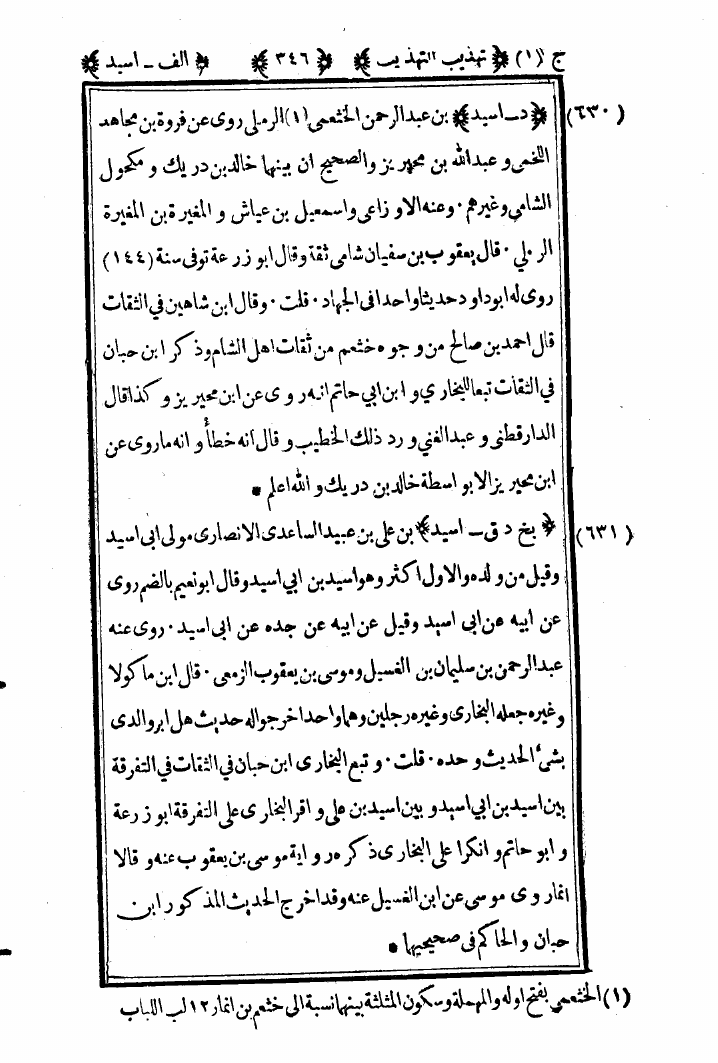 ج (١) ﴿ تهذيب التهذيب ﴾ ﴿ ٣٤٦ ﴾ ﴿ الف ـ اسيد ﴾
(٦٣٠) ﴿ د ـ اسيد ﴾ بن عبدالرحمن الخثعمى (١) الرملى روى عن فروة بن مجاهد
اللخمى و عبدالله بن محيريز والصحيح ان بينهما خالد بن دريك و مكحول
الشامى وغيرهم ٠ وعنه الاوزاعى واسمعيل بن عياش و المغيرة بن المغيرة
الرملي ٠ قال يعقوب بن سفيان شامى ثقة وقال ابو زرعة توفى سنة (١٤٤)
روى له ابوداود حديثا واحدا فى الجهاد ٠ قلت ٠ وقال ابن شاهين في الثقات
قال احمد بن صالح من وجوه خثعم من ثقات اهل الشام وذكر ابن حبان
في الثقات تبعا للبخاري و ابن ابي حاتم انه روى عن ابن محيريز و كذا قال
الدارقطنى و عبدالغني و رد ذلك الخطيب و قال انه خطأ و انه ما روى عن
ابن محيريز الا بواسطة خالد بن دريك و الله اعلم •
(٦٣١) ﴿ بخ د ق ـ اسيد ﴾ بن على بن عبيد الساعدى الانصارى مولى ابى اسيد
وقيل من ولده والاول اكثر وهو اسيد بن ابي اسيد وقال ابونعيم بالضم روى
عن ابيه عن ابى اسيد وقيل عن ابيه عن جده عن ابى اسيد ٠ روى عنه
عبدالرحمن بن سليمان بن الغسيل وموسى بن يعقوب الزمعى ٠ قال ابن ماكولا
وغيره جعله البخارى وغيره رجلين وهما واحد اخرجوا له حديث هل ابر والدى
بشىء الحديث وحده ٠ قلت ٠ و تبع البخارى ابن حبان في الثقات في التفرقة
بين اسيد بن ابي اسيد و بين اسيد بن على و اقر البخارى على التفرقة ابو زرعة
و ابو حاتم و انكرا على البخارى ذكره رواية موسى بن يعقوب عنه و قالا
انما روى موسى عن ابن الغسيل عنه وقد اخرج الحديث المذكور ابن
حبان و الحاكم فى صحيحيهما •
(١) الخثعمى بفتح اوله والمهملة وسكون المثلثة بينهما نسبة الى خثعم بن انمار ١٢ لب اللباب